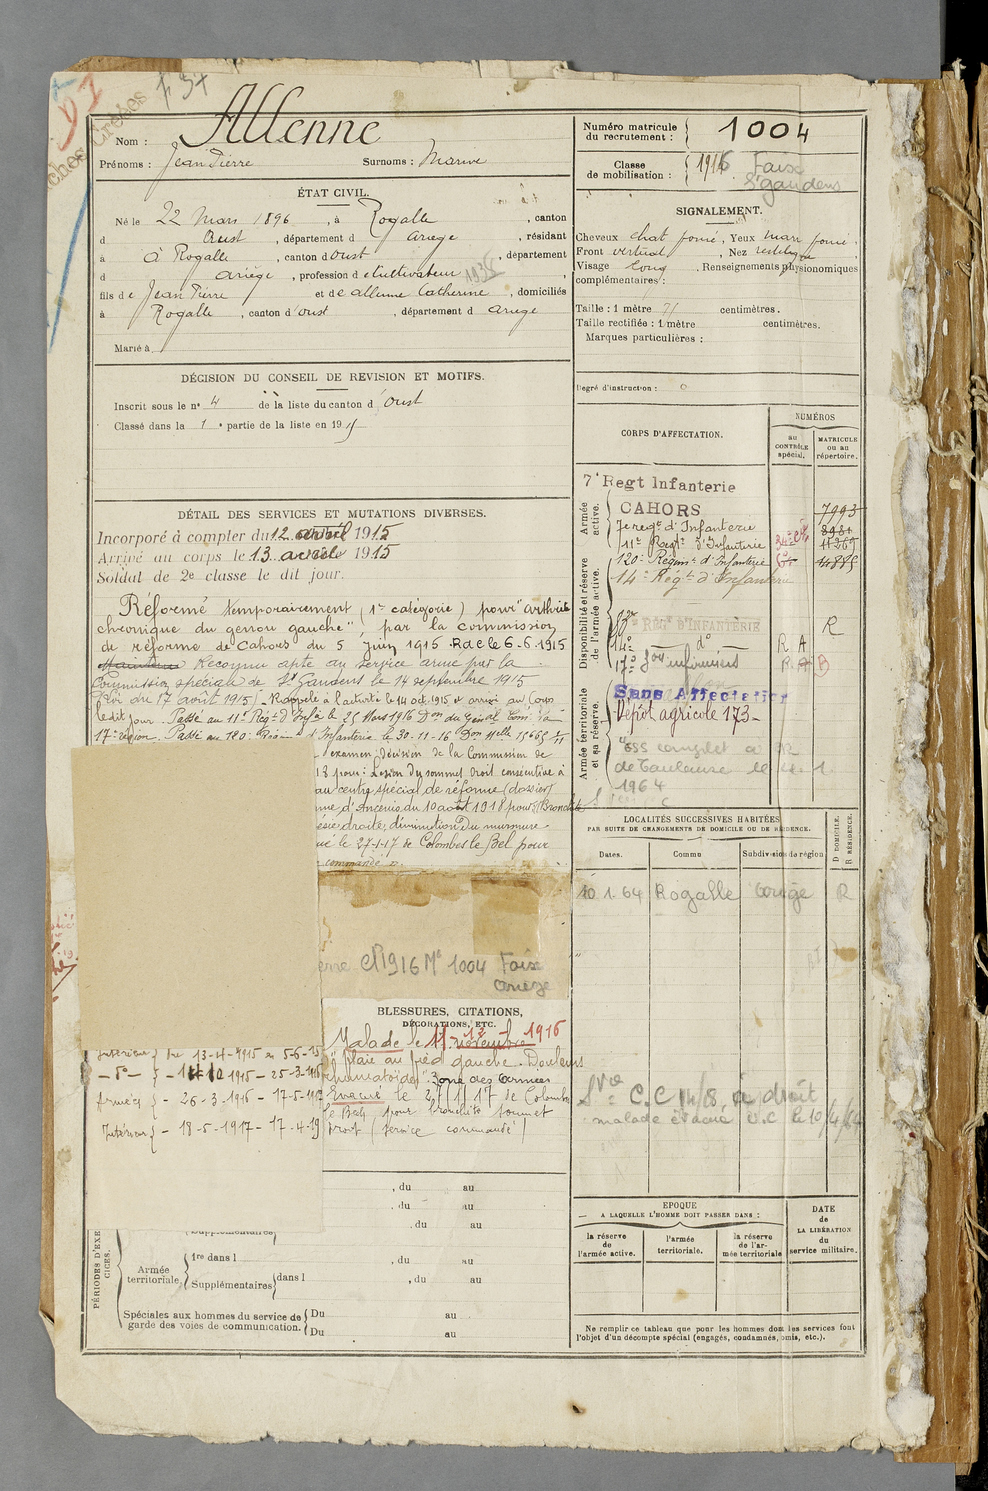 P 37
Nom : Allenne
Prénoms : Jean Pierre Surnoms :
Numéro matricule du recrutement : 1004
Classe de mobilisation : 1916 Foix
St gaudens
ÉTAT CIVIL.
Né le 22 Mars 1896, à Rogalle, canton
d Oust, département d Ariege, résidant
à à Rogalle, canton d'oust, département
d ariège, profession de Cultivateur
fils de Jean Pierre et de allenne Catherine, domiciliés
à Rogalle, canton d'oust, département d ariege
Marié à
DÉCISION DU CONSEIL DE REVISION ET MOTIFS.
Inscrit sous le n° 4 de la liste du canton d'Oust
Classé dans la 1e partie de la liste en 1915
DÉTAIL DES SERVICES ET MUTATIONS DIVERSES.
Incorporé à compter du 12 avril 1915
Arrivé au corps le 13 avril 1915
Soldat de 2e classe le dit jour.
Réformé temporairement (1re catégorie) pour "arthrite
chronique du genou gauche", par la commission
de réforme de Cahors du 5 Juin 1915 Rac le 6-6-1915
Reconnu apte au service armé par la
Commission spéciale de St Gaudens le 14 septembre 1915
(Loi du 17 août 1915). Rappelé à l'activité le 14 oct. 1915 et arrivé au Corps
ledit jour. Passé au 11e Régt d'Infie le 25 Mars 1916 Don du Génal Com. la
17e région. Passé au 120e Régim. d'Infanterie le 30-11-16 Don Melle 15665 2/11
examen; Décision de la Commission de
18 pour : Lésion du sommet droit consécutive à
au centre spécial de réforme (dossier)
d'Ancenis du 10 août 1918 pour Bronchite
droite; diminution du murmure
le 27-1-17 de Colombes le Bel pour
commandé ".
Cl 1916 Me 1004 Foix
Ariège
BLESSURES, CITATIONS,
DÉCORATIONS, ETC.
Malade le 11 novembre 1916
"Plaie au pied gauche. Douleurs
rhumatoïdes". Zone des Armées
Evacué le 27/1/17 de Colombes
le Bel, pour bronchite sommet
droit (service commandé)
Intérieur du 13-4-1915 au 5-6-15
- do - 14-10 1915 - 25-3-1916
Armées - 26-3-1916 - 17-5-1917
Intérieur - 18-5-1917 - 17-4-19
, du au
, du au
, du au
PÉRIODES D'EXERCICES.
Supplémentaires
Armée territoriale
1re dans l , du au
Supplémentaires dans l , du au
Spéciales aux hommes du service de garde des voies de communication.
Du au
Du au
SIGNALEMENT.
Cheveux chat foncé, Yeux marr foncé,
Front vertical, Nez rectiligne,
Visage long, Renseignements physionomiques
complémentaires :
Taille : 1 mètre 71 centimètres.
Taille rectifiée : 1 mètre centimètres.
Marques particulières :
Degré d'instruction :
CORPS D'AFFECTATION.
NUMÉROS
au CONTRÔLE spécial.
MATRICULE ou au répertoire.
Armée active.
7e Regt Infanterie
CAHORS
7993
7e regt d'Infanterie
11e Régt d'Infanterie 11267
120e Régimt d'Infanterie 14885
Disponibilité et réserve de l'armée active.
14e Régt d'Infanterie
RÉGT D'INFANTERIE R
14e do R A
17e Son infirmiers R
Sans Affectation
Armée territoriale et sa réserve.
Dépôt agricole 173
de Toulouse le
1964
LOCALITÉS SUCCESSIVES HABITÉES
PAR SUITE DE CHANGEMENTS DE DOMICILE OU DE RÉSIDENCE.
D DOMICILE. R RÉSIDENCE.
Dates. Commu Subdivision de région
10 1. 64 Rogalle Ariège R
Sve : C.C 14/18 a droit
malade évacué U.C le 10/4/64
EPOQUE
A LAQUELLE L'HOMME DOIT PASSER DANS :
la réserve de l'armée active.
l'armée territoriale.
la réserve de l'armée territoriale
DATE de LA LIBÉRATION du service militaire.
Ne remplir ce tableau que pour les hommes dont les services font
l'objet d'un décompte spécial (engagés, condamnés, omis, etc.).